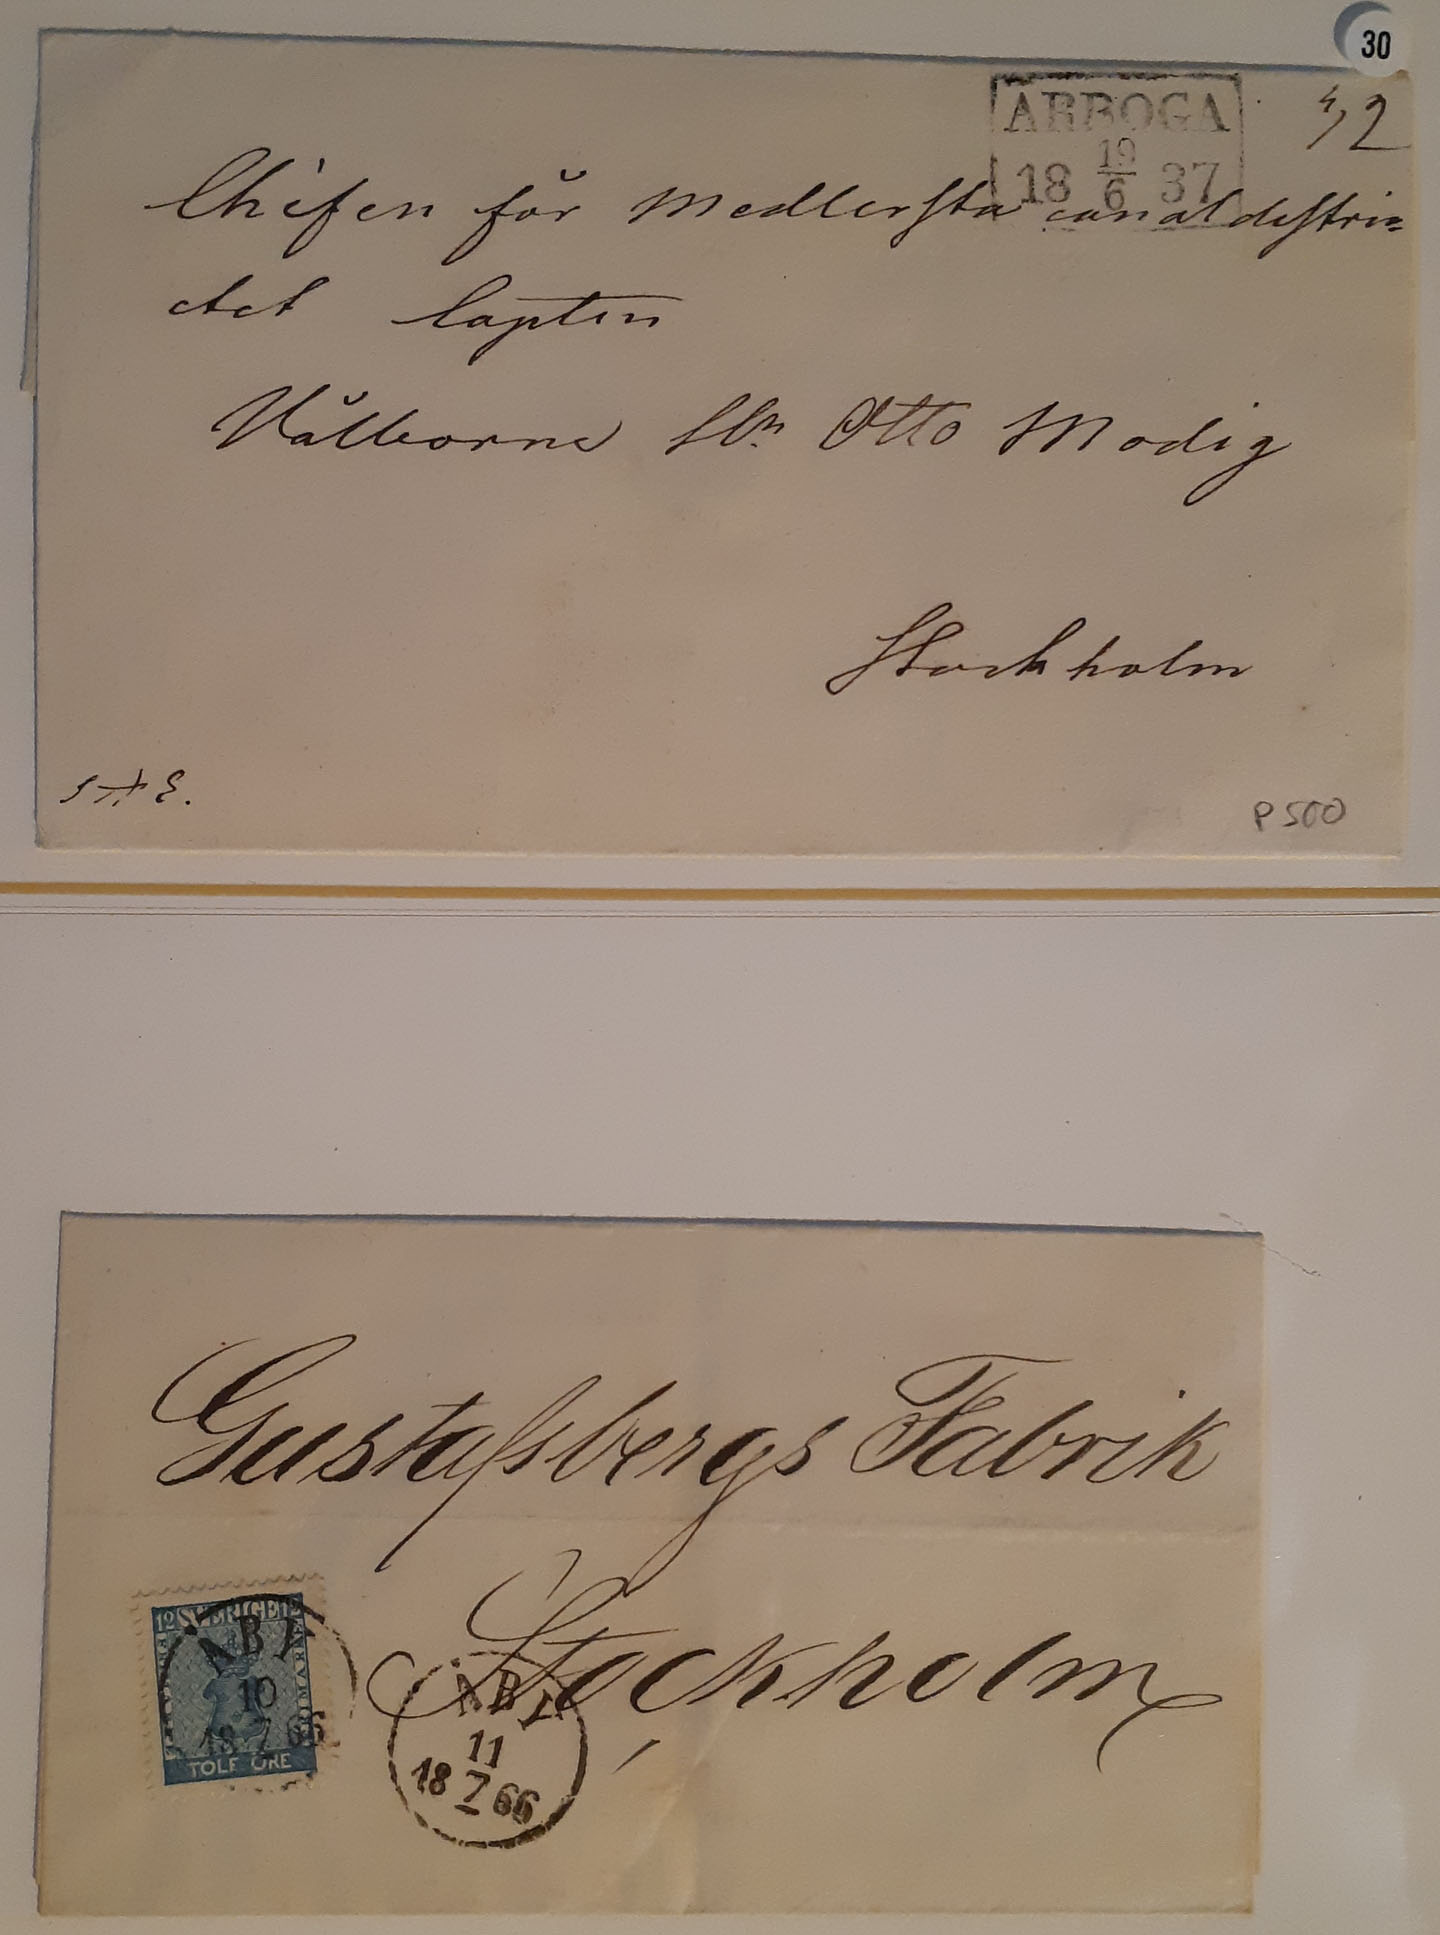 30
ARBOGA
18 19/6 37
32
Chefen för Medlersta canaldistri=
ctet Capten
Välborne H:r Otto Modig
Stockholm
P 500
Gustafsbergs Fabrik
Stockholm
12 SVERIGE 12
FRIMÄRKE
TOLF ÖRE
ÅBY
10
18 7 66
ÅBY
11
18 7 66